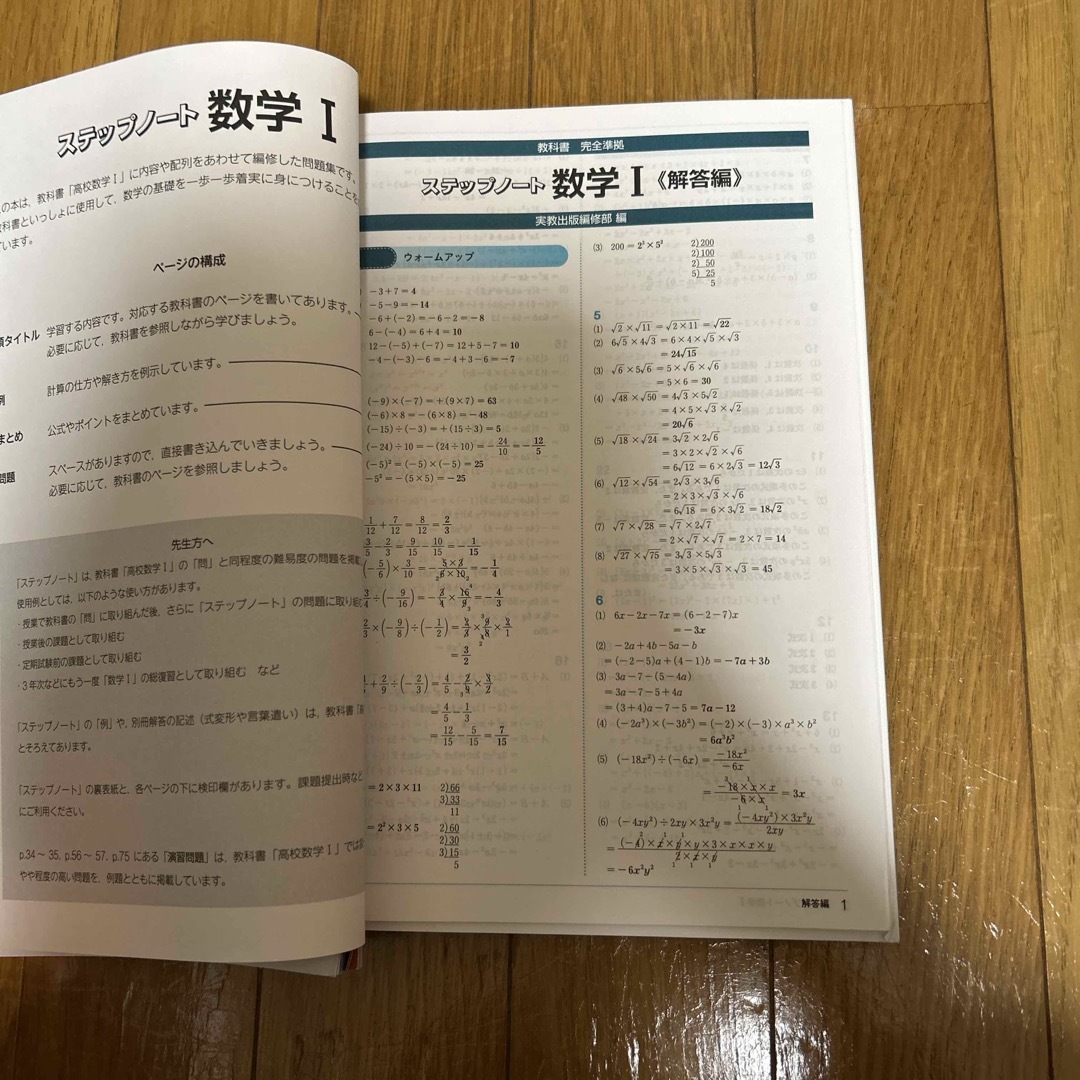 ステップノート 数学Ⅰ
の本は、教科書「高校数学Ⅰ」に内容や配列をあわせて編修した問題集です。
科書といっしょに使用して、数学の基礎を一歩一歩着実に身につけることを
ています。
ページの構成
タイトル 学習する内容です。対応する教科書のページを書いてあります。
必要に応じて、教科書を参照しながら学びましょう。
例 計算の仕方や解き方を例示しています。
まとめ 公式やポイントをまとめています。
問題 スペースがありますので、直接書き込んでいきましょう。
必要に応じて、教科書のページを参照しましょう。
先生方へ
「ステップノート」は、教科書「高校数学Ⅰ」の「問」と同程度の難易度の問題を掲載
使用例としては、以下のような使い方があります。
・授業で教科書の「問」に取り組んだ後、さらに「ステップノート」の問題に取り組
・授業後の課題として取り組む
・定期試験前の課題として取り組む
・3年次などにもう一度「数学Ⅰ」の総復習として取り組む など
「ステップノート」の「例」や、別冊解答の記述(式変形や言葉遣い)は、教科書「
とそろえてあります。
「ステップノート」の裏表紙と、各ページの下に検印欄があります。課題提出時など
にご利用ください。
p.34～35, p.56～57, p.75にある「演習問題」は、教科書「高校数学Ⅰ」では
やや程度の高い問題を、例題とともに掲載しています。
教科書 完全準拠
ステップノート 数学Ⅰ《解答編》
実教出版編修部 編
ウォームアップ
-3+7=4
-5-9=-14
-6+(-2)=-6-2=-8
6-(-4)=6+4=10
12-(-5)+(-7)=12+5-7=10
-4-(-3)-6=-4+3-6=-7
(-9)×(-7)=+(9×7)=63
(-6)×8=-(6×8)=-48
(-15)÷(-3)=+(15÷3)=5
(-24)÷10=-(24÷10)=-24/10=-12/5
(-5)²=(-5)×(-5)=25
-5²=-(5×5)=-25
1/12+7/12=8/12=2/3
3/5-2/3=9/15-10/15=-1/15
(-5/6)×3/10=-5×3/6×10=-1/4
3/4÷(-9/16)=-3/4×16/9=-4/3
2/3×(-9/8)÷(-1/2)=2/3×9/8×2/1
=3/2
+2/9÷(-2/3)=4/5-2/9×3/2
=4/5-1/3
=12/15-5/15=7/15
=2×3×11 2)66
3)33
11
=2²×3×5 2)60
2)30
3)15
5
(3) 200=2³×5² 2)200
2)100
2) 50
5) 25
5
5
(1) √2×√11=√2×11=√22
(2) 6√5×4√3=6×4×√5×√3
=24√15
(3) √6×5√6=5×√6×√6
=5×6=30
(4) √48×√50=4√3×5√2
=4×5×√3×√2
=20√6
(5) √18×√24=3√2×2√6
=3×2×√2×√6
=6√12=6×2√3=12√3
(6) √12×√54=2√3×3√6
=2×3×√3×√6
=6√18=6×3√2=18√2
(7) √7×√28=√7×2√7
=2×√7×√7=2×7=14
(8) √27×√75=3√3×5√3
=3×5×√3×√3=45
6
(1) 6x-2x-7x=(6-2-7)x
=-3x
(2) -2a+4b-5a-b
=(-2-5)a+(4-1)b=-7a+3b
(3) 3a-7-(5-4a)
=3a-7-5+4a
=(3+4)a-7-5=7a-12
(4) (-2a³)×(-3b²)=(-2)×(-3)×a³×b²
=6a³b²
(5) (-18x²)÷(-6x)=-18x²/-6x
=-18×x×x/-6×x=3x
(6) (-4xy²)÷2xy×3x²y=(-4xy²)×3x²y/2xy
=(-4)×x×y×y×3×x×x×y/2×x×y
=-6x²y²
解答編 1